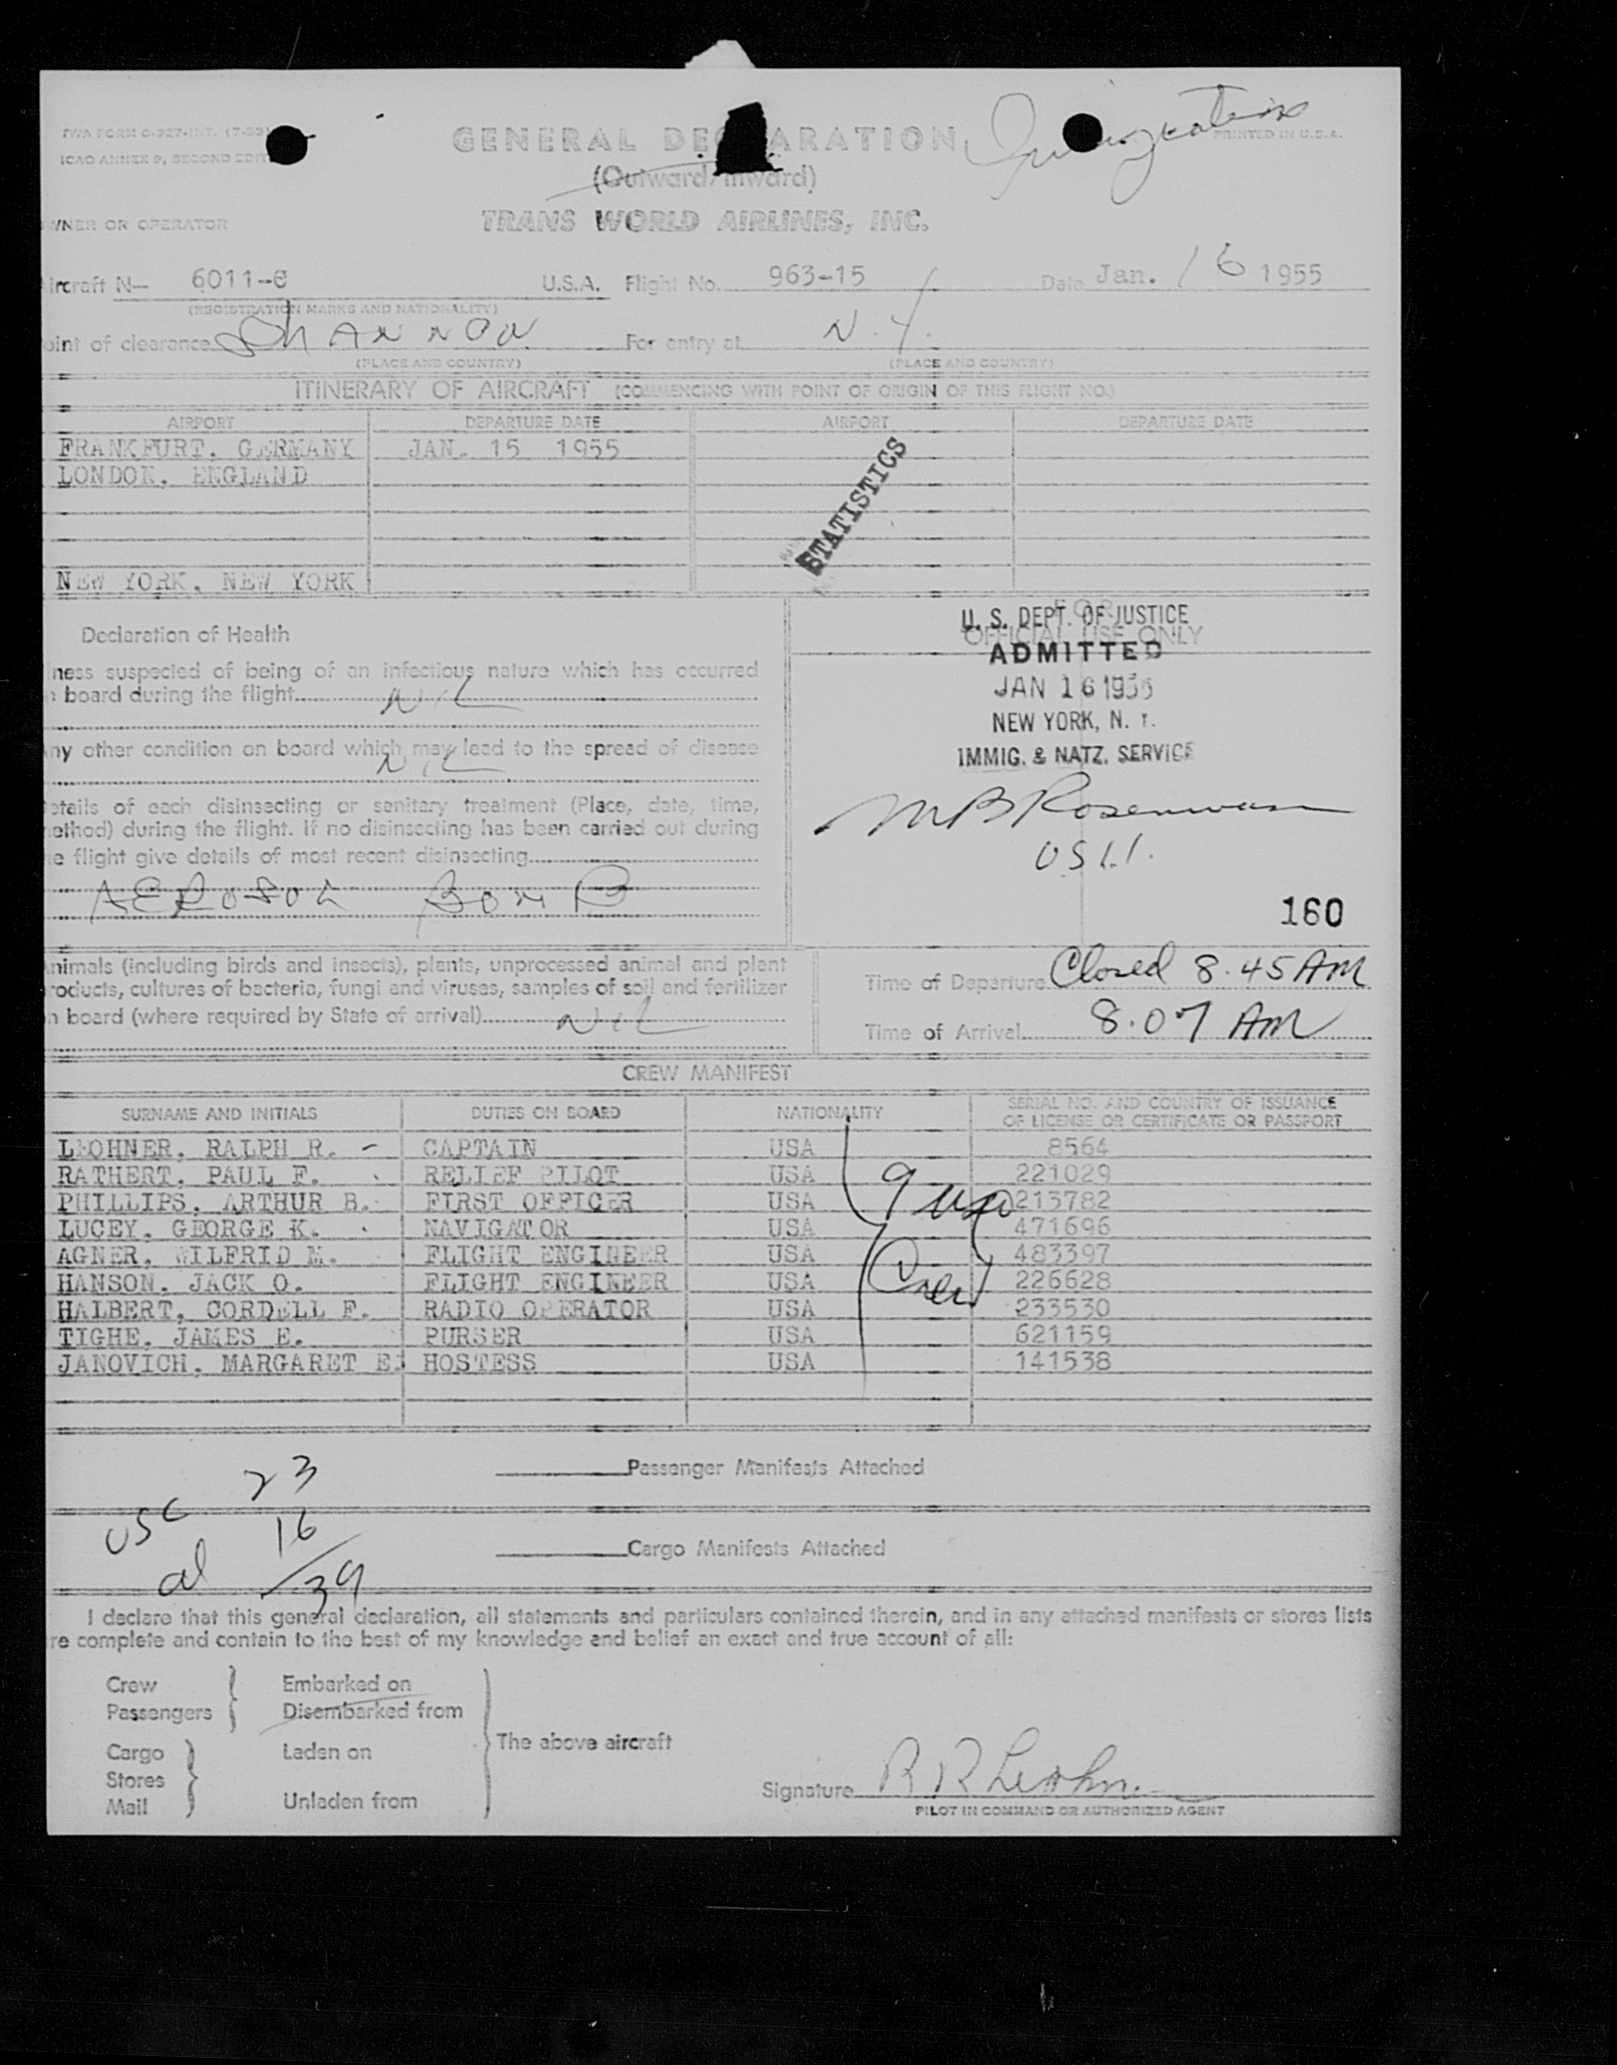 TWA FORM
ICAO ANNEX 9, SECOND
GENERAL DE ARATION
Immigration
PRINTED IN U.S.A.
(Outward/Inward)
WNER OR OPERATOR TRANS WORLD AIRLINES, INC.
ircraft N— 6011-C U.S.A. Flight No. 963-15 Date Jan. 16 1955
(REGISTRATION MARKS AND NATIONALITY)
oint of clearance SHANNON For entry at N.Y.
(PLACE AND COUNTRY) (PLACE AND COUNTRY)
ITINERARY OF AIRCRAFT (COMMENCING WITH POINT OF ORIGIN OF THIS FLIGHT NO.)
AIRPORT DEPARTURE DATE AIRPORT DEPARTURE DATE
FRANKFURT, GERMANY JAN. 15 1955
LONDON, ENGLAND
STATISTICS
NEW YORK, NEW YORK
FOR
OFFICIAL USE ONLY
U. S. DEPT. OF JUSTICE
ADMITTED
JAN 16 1955
NEW YORK, N. Y.
IMMIG. & NATZ. SERVICE
160
Declaration of Health
lness suspected of being of an infectious nature which has occurred
n board during the flight NIL
ny other condition on board which may lead to the spread of disease
NIL
etails of each disinsecting or sanitary treatment (Place, date, time,
ethod) during the flight. If no disinsecting has been carried out during
e flight give details of most recent disinsecting
AEROSOL BOMB
nimals (including birds and insects), plants, unprocessed animal and plant
roducts, cultures of bacteria, fungi and viruses, samples of soil and fertilizer
n board (where required by State of arrival) NIL
Time of Departure Closed 8.45 AM
Time of Arrival 8.07 AM
CREW MANIFEST
SURNAME AND INITIALS DUTIES ON BOARD NATIONALITY SERIAL NO. AND COUNTRY OF ISSUANCE
OF LICENSE OR CERTIFICATE OR PASSPORT
LEOHNER, RALPH R. - CAPTAIN USA 8564
RATHERT, PAUL F. RELIEF PILOT USA 221029
PHILLIPS, ARTHUR B. FIRST OFFICER USA 213782
LUCEY, GEORGE K. NAVIGATOR USA 471696
AGNER, WILFRID M. FLIGHT ENGINEER USA 483397
HANSON, JACK O. FLIGHT ENGINEER USA 226628
HALBERT, CORDELL F. RADIO OPERATOR USA 233530
TIGHE, JAMES E. PURSER USA 621159
JANOVICH, MARGARET E. HOSTESS USA 141538
Crew
23 Passenger Manifests Attached
USC 16
al 39 Cargo Manifests Attached
I declare that this general declaration, all statements and particulars contained therein, and in any attached manifests or stores lists
re complete and contain to the best of my knowledge and belief an exact and true account of all:
Crew Embarked on
Passengers Disembarked from
The above aircraft
Cargo Laden on
Stores
Mail Unladen from
Signature
PILOT IN COMMAND OR AUTHORIZED AGENT